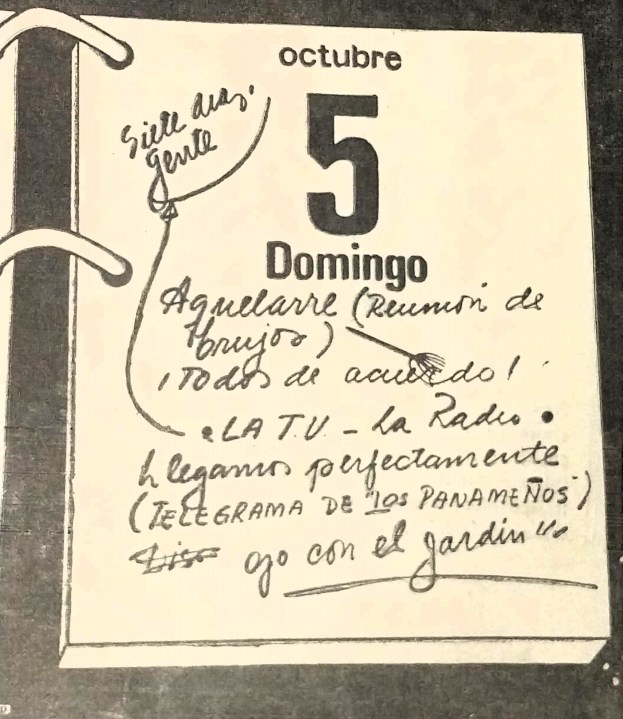 octubre
5
Domingo
Siete días.
gente
Aquelarre (Reunión de
brujos)
¡Todos de acuerdo!
• LA T.V. - La Radio •
Llegamos perfectamente
(TELEGRAMA DE "LOS PANAMEÑOS")
ojo con el jardín "